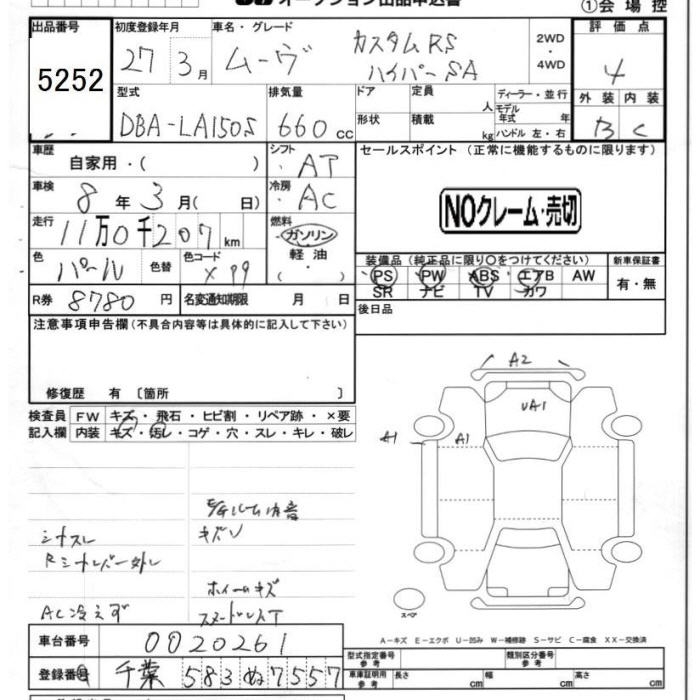 オークション出品申込書
①会場控
出品番号
5252
初度登録年月
27 3月
車名・グレード
ムーヴ カスタムRS
ハイパーSA
2WD
・
4WD
評価点
4
外装 内装
B C
型式
DBA-LA150S
排気量
660cc
ドア
形状
定員 人
積載 kg
ディーラー・並行
モデル年式 年
ハンドル 左・右
車歴
自家用・( )
シフト
・AT
セールスポイント (正常に機能するものに限ります)
NOクレーム・売切
車検
8年 3月( 日)
冷房
・AC
走行
11万0千207km
燃料
・ガソリン
軽油・
色
パール
色替
色コード
X99
装備品 (純正品に限り○をつけてください)
・PS・PW・ABS・エアB・AW
SR ナビ TV カワ
新車保証書
有・無
R券 8780円
名変通知期限 月 日
後日品
注意事項申告欄(不具合内容等は具体的に記入して下さい)
修復歴 有 〔箇所 〕
検査員
記入欄
FW キズ・飛石・ヒビ割・リペア跡・×要
内装 キズ・汚レ・コゲ・穴・スレ・キレ・破レ
A2
UA1
A1 A1
シートスレ
Rシートレバー外レ
AC冷えず
キズ有
ホイールキズ
スペア
A-キズ E-エクボ U-凹み W-補修跡 S-サビ C-腐食 XX-交換済
車台番号
0020261
登録番号
千葉 583 ぬ 7557
型式指定番号
参考
類別区分番号
参考
車庫証明用
参考
長さ cm
幅 cm
高さ cm